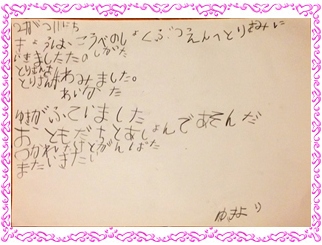 1がつ11にち
きょうは、こうべのしょくぶつえんへとりをみに
いきましたた。しがた
とりさんを
とりさんはみました。
あいがた
ゆきがふていました
おともだちとあしょんであそんだ
つかれたけどがんばた
またいきたい
ゆきより